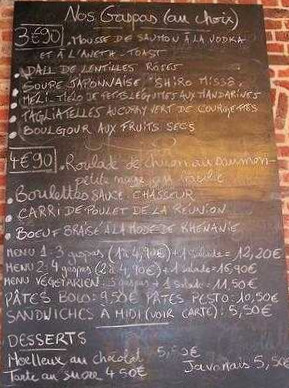 Nos Gaspas (au choix)
3€90 . MOUSSE DE SAUMON À LA VODKA
ET À L'ANETH - TOAST
DALL DE LENTILLES ROSES
SOUPE JAPONNAISE "SHIRO MISSO"
MELI-MELO DE PETITS LÉGUMES AUX MANDARINES
TAGLIATELLES AU CURRY VERT DE COURGETTES
BOULGOUR AUX FRUITS SECS
4€90 . Roulade de saumon
petite basilic
. Boulettes SAUCE CHASSEUR
CARRI DE POULET DE LA RÉUNION
BOEUF BRAISÉ À LA MODE DE RHENANIE
MENU 1: 3 gaspas (1 à 4,90€) + 1 salade = 12,20€
MENU 2: 4 gaspas (2 à 4,90€) + 1 salade = 15,90€
MENU VÉGÉTARIEN: 3 gaspas + 1 salade = 11,50€
PÂTES BOLO: 9,50€ PÂTES PESTO: 10,50€
SANDWICHES À MIDI (VOIR CARTE): 5,50€
DESSERTS
Moelleux au chocolat 5,50€
Javanais 5,50€
Tarte au sucre 4,50€